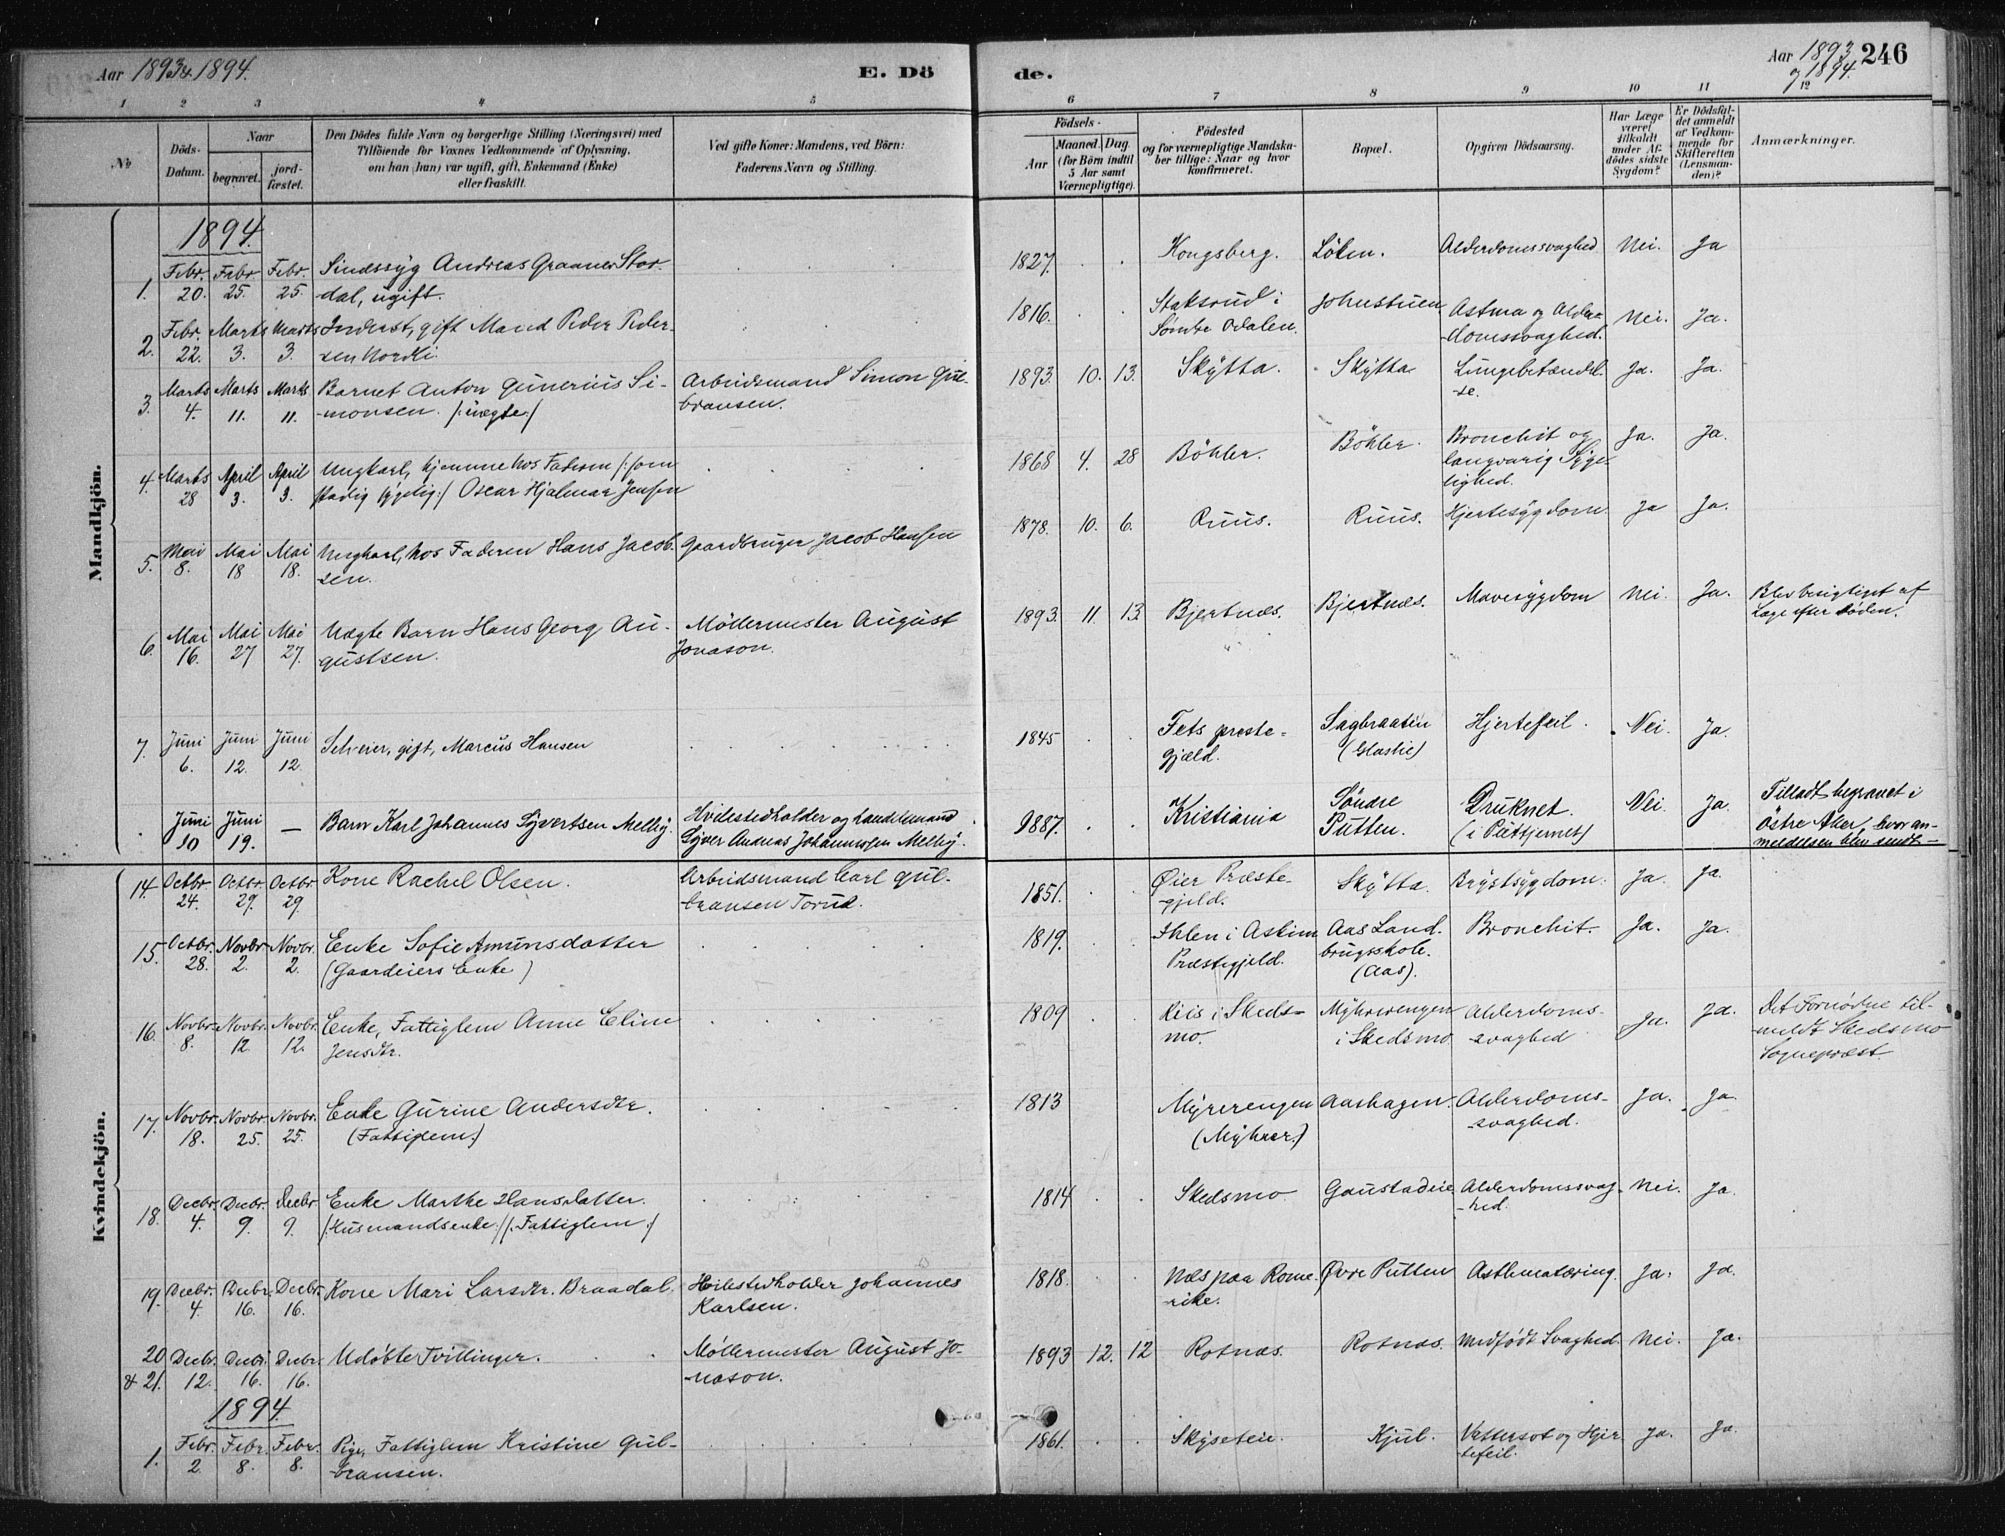 Aar 1893 & 1894.
E. Dö
de.
Aar 1893
og 1894.
246
1 2 3 4 5 6 7 8 9 10 11 12
No
Döds-
Datum.
Naar
begravet.
jord-
fæstet.
Den Dödes fulde Navn og borgerlige Stilling (Næringsvei) med
Tilföiende for Voxnes Vedkommende af Oplysning,
om han (hun) var ugift, gift, Enkemand (Enke)
eller fraskilt.
Ved gifte Koner: Mandens, ved Börn:
Faderens Navn og Stilling.
Födsels-
Aar
Maaned. Dag.
(for Börn indtil
5 Aar samt
Værnepligtige).
Födested
og for værnepligtige Mandska-
ber tillige: Naar og hvor
konfirmeret.
Bopæl.
Opgiven Dödsaarsag.
Har Læge
været
tilkaldt
under Af-
dödes sidste
Sygdom?
Er Dödsfal-
det anmeldt
af Vedkom-
mende for
Skifteretten
(Lensman-
den)?
Anmærkninger.
Mandkjön.
1894.
1. Febr. 20. Febr. 25. Febr. 25. Sindssyg Andreas Graaner Stor-
dal, ugift.
1827. Kongsberg. Löken. Alderdomssvaghed Nei. Ja
2. Febr. 22. Marts 3. Marts 3. Inderst, gift Mand Peder Peder-
sen Nordli
1816. Staksrud i
Söndre Odalen. Johnstuen Astma og Alder-
domssvaghed. Nei. Ja.
3. Marts 4. Marts 11. Marts 11. Barnet Anton Gunerius Si-
monsen. /: uægte :/
Arbeidsmand Simon Gul-
bransen.
1893. 10. 13. Skÿtta. Skÿtta Lungebetændel-
se. Ja. Ja.
4. Marts 28 April 3. April 3. Ungkarl, hjemme hos Faderen /:
stadig sygelig :/ Oscar Hjalmar Jensen
1868 4. 28 Böhler. Böhler. Bronchit og
langvarig Syge-
lighed. Ja. Ja.
5. Mai 8. Mai 18 Mai 18. Ungkarl, hos Faderen Hans Jacob-
sen.
Gaardbruger Jacob Hansen
1878. 10. 6. Ruus. Ruus. Hjertesÿgdom Ja Ja.
6. Mai 16. Mai 27 Mai 27. Uægte Barn Hans Georg Au-
gustsen.
Möllermester August
Jonason.
1893. 11. 13. Bjertnæs. Bjertnæs. Mavesygdom Nei. Ja. Blev besigtiget af
Læge efter Döden.
7. Juni 6. Juni 12. Juni 12. Selveier, gift, Marcus Hansen
1845 Fets præste-
gjæld. Sagbraaten
Hjertefeil. Nei. Ja.
Juni 10 Juni 19. — Barn Karl Johannes Syvertsen Melby.
Hvilestedholder og handelsmand
Syver Andreas Johannessen Melby.
1887. Kristiania Söndre
Putten. Druknet.
(i Puttjernet) Nei. Ja. Tilladt begravet i
Östre Aker, hvor an-
meldelsen blev sendt —
Kvindekjön.
14. Octbr. 24. Octbr. 29. Octbr. 29. Kone Rachel Olsen.
Arbeidsmand Carl Gul-
bransen Torud.
1851. Øier Præste-
gjeld. Skÿtta. Brÿstsÿgdom. Ja. Ja.
15. Octbr. 28. Novbr. 2. Novbr. 2. Enke Sofie Amunsdatter
(Gaardeiers Enke)
1819. Ihlen i Askim
Præstegjeld. Aas Land-
brugsskole.
(Aas). Bronchit. Ja. Ja.
16. Novbr. 8. Novbr. 12. Novbr. 12. Enke, Fattiglem Anne Eline
Jensdtr.
1809 Riis i Skeds-
mo. Myhrerengen
i Skedsmo Alderdoms-
svaghed Ja. Ja. Det Fornødne til-
meldt Skedsmo
Sognepræst.
17. Novbr. 18. Novbr. 25. Novbr. 25. Enke Gurine Andersdtr.
(Fattiglem.)
1813 Mÿrerengen
(Mÿhrer.) Aashagen. Alderdoms-
svaghed. Ja. Ja.
18. Decbr. 4. Decbr. 9. Decbr. 9. Enke Marthe Hansdatter.
/: Husmandsenke :/ /: Fattiglem :/
1814 Skedsmo Gaustadeie Alderdomssvag-
hed. Nei. Ja.
19. Decbr. 4. Decbr. 16. Decbr. 16. Kone Mari Larsdtr. Braadal.
Hvilestedholder Johannes
Karlsen.
1818. Næs paa Rome-
rike. Øvre Putten Asthmatæring. Ja. Ja.
20 & 21. Decbr. 12. Decbr. 16. Decbr. 16. Udöbte Tvillinger.
Møllermester August Jo-
nason.
1893 12. 12 Rotnæs. Rotnæs. Medfödt Svaghed. Nei. Ja.
1894.
1. Febr. 2. Febr. 8. Febr. 8. Pige, Fattiglem Kristine Gul-
bransen.
1861. Skÿseteie. Kjul. Vattersot og Hjer-
tefeil. Ja. Ja.